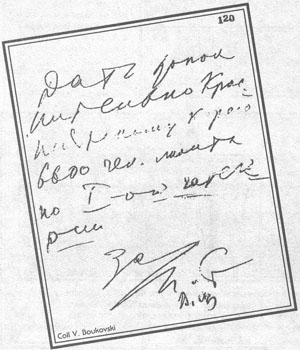 120
Дать допол
нительно Крас
ноярскому краю
6600 чел. лимита
по I-ой катего
рии
За
Coll V. Boukovski